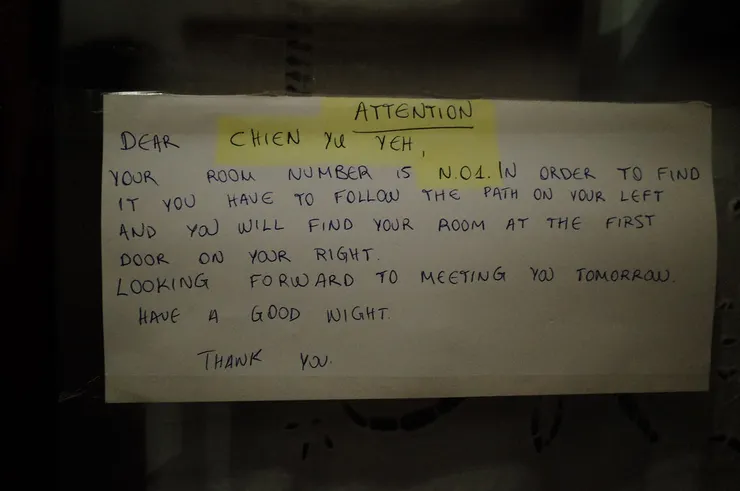 ATTENTION
DEAR CHIEN YU YEH,
YOUR ROOM NUMBER IS N.01. IN ORDER TO FIND
IT YOU HAVE TO FOLLOW THE PATH ON YOUR LEFT
AND YOU WILL FIND YOUR ROOM AT THE FIRST
DOOR ON YOUR RIGHT.
LOOKING FORWARD TO MEETING YOU TOMORROW.
HAVE A GOOD NIGHT.
THANK YOU.